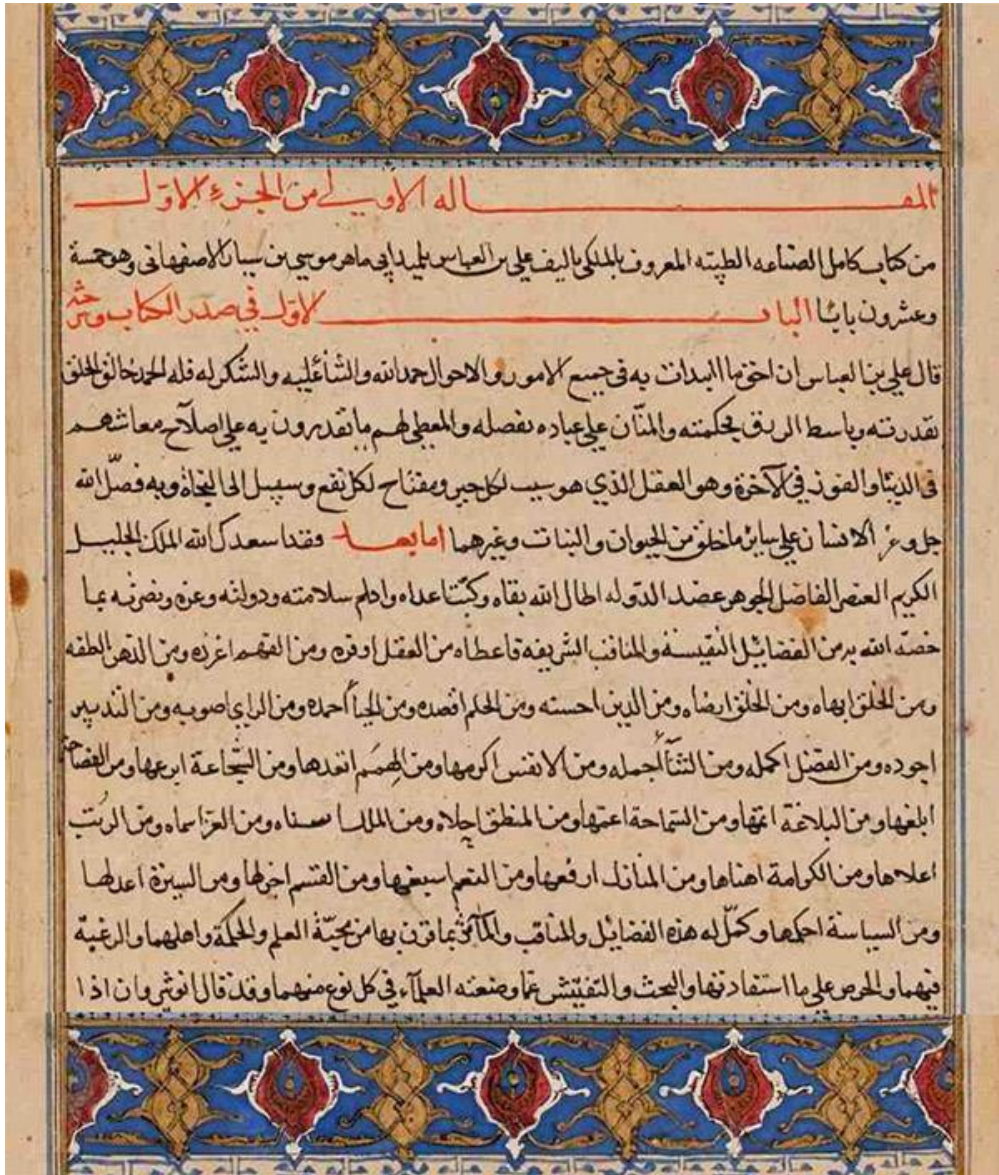 المقاله الاولي من الجزء الاول
من كتاب كامل الصناعه الطبيته المعروف بالملكي تاليف علي بن العباس تلميد ابي ماهر موسي بن سيار الاصفهاني وهو خمسة
وعشرون بابا الباب الاول في صدر الكتاب
قال علي بن العباس ان احق ما ابتدات به في جميع الامور والاحوال حمد الله والثنا عليه والشكر له فله الحمد خالق الخلق
بقدرته وباسط الرزق بحكمته والمنّان علي عباده بفضله والمعطي لهم ما يقدرون به علي اصلاح معاشهم
في الدنيا والفوز في الآخرة وهو العقل الذي هو سبب لكل خير ومفتاح لكل نفع وسبيل الى النجاة وبه فضّل الله
جل وعز الانسان علي سائر ما خلق من الحيوان والنبات وغيرهما اما بعد فقد اسعدك الله الملك الجليل
الكريم العنصر الفاضل الجوهر عضد الدوله اطال الله بقاه وكبت اعداه وادام سلامته ودولته وعزه ونصرته بما
خصّه الله به من الفضائل النفيسه والمناقب الشريفه فاعطاه من العقل اوفره ومن الفهم اغزره ومن الذهن الطفه
ومن الخلق ابهاه ومن الخلق ارضاه ومن الدين احسنه ومن الحلم اقصده ومن الحيا احمده ومن الراي اصوبه ومن التدبير
اجوده ومن الفضل اكمله ومن الثنآ اجمله ومن الانفس اكرمها ومن الهمم ابعدها ومن الشجاعة ابرعها ومن الفصاحة
ابلغها ومن البلاغة اتمها ومن السّماحة اعمّها ومن المنطق اجلاه ومن الملك اسناه ومن العز اسماه ومن الرتب
اعلاها ومن الكرامة اهناها ومن المنازل ارفعها ومن النعم اسبغها ومن القسم اجزلها ومن السيرة اعدلها
ومن السياسة احكمها وكمّل له هذه الفضايل والمناقب والمآثر بما قرن بها من محبّة العلم والحكمة واهلهما والرغبة
فيهما والحرص علي ما استفادتها والبحث والتفتيش عما وضعته العلمآء في كل نوع منهما وقد قال انوشروان اذا